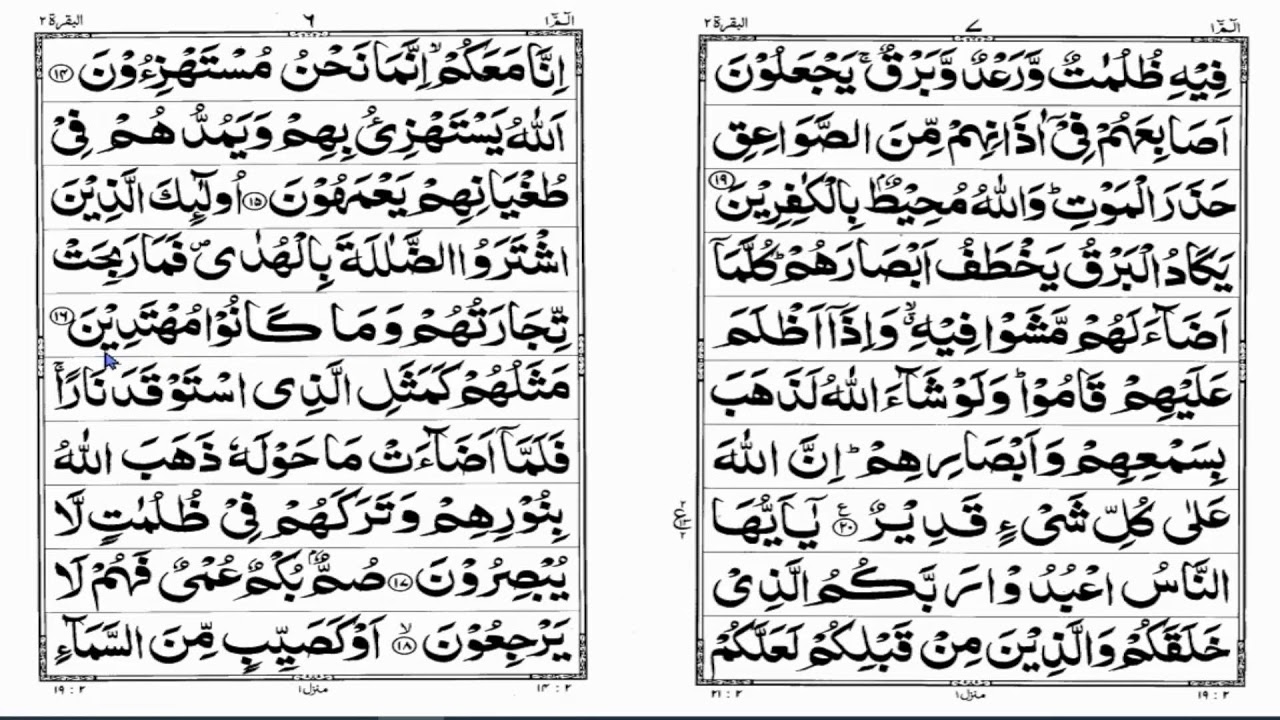 الٓمّٓ ١
٦
البقرة ٢
اِنَّا مَعَكُمْ ۙ اِنَّمَا نَحْنُ مُسْتَهْزِءُوْنَ ۝١٤
اَللّٰهُ يَسْتَهْزِئُ بِهِمْ وَيَمُدُّهُمْ فِىْ
طُغْيَانِهِمْ يَعْمَهُوْنَ ۝١٥ اُولٰٓئِكَ الَّذِيْنَ
اشْتَرَوُا الضَّلٰلَةَ بِالْهُدٰى ۪ فَمَا رَبِحَتْ
تِّجَارَتُهُمْ وَمَا كَانُوْا مُهْتَدِيْنَ ۝١٦
مَثَلُهُمْ كَمَثَلِ الَّذِى اسْتَوْقَدَ نَارًا ۚ
فَلَمَّآ اَضَآءَتْ مَا حَوْلَهٗ ذَهَبَ اللّٰهُ
بِنُوْرِهِمْ وَتَرَكَهُمْ فِىْ ظُلُمٰتٍ لَّا
يُبْصِرُوْنَ ۝١٧ صُمٌّۢ بُكْمٌ عُمْىٌ فَهُمْ لَا
يَرْجِعُوْنَ ۙ۝١٨ اَوْ كَصَيِّبٍ مِّنَ السَّمَآءِ
٢ : ١٤
منزل ١
٢ : ١٩
الٓمّٓ ١
٧
البقرة ٢
فِيْهِ ظُلُمٰتٌ وَّرَعْدٌ وَّبَرْقٌ ۚ يَجْعَلُوْنَ
اَصَابِعَهُمْ فِىْٓ اٰذَانِهِمْ مِّنَ الصَّوَاعِقِ
حَذَرَ الْمَوْتِ ؕ وَاللّٰهُ مُحِيْطٌۢ بِالْكٰفِرِيْنَ ۝١٩
يَكَادُ الْبَرْقُ يَخْطَفُ اَبْصَارَهُمْ ؕ كُلَّمَآ
اَضَآءَ لَهُمْ مَّشَوْا فِيْهِ ۙۗ وَاِذَآ اَظْلَمَ
عَلَيْهِمْ قَامُوْا ؕ وَلَوْ شَآءَ اللّٰهُ لَذَهَبَ
بِسَمْعِهِمْ وَاَبْصَارِهِمْ ؕ اِنَّ اللّٰهَ
عَلٰى كُلِّ شَىْءٍ قَدِيْرٌ ۝٢٠ ع يٰٓاَيُّهَا
النَّاسُ اعْبُدُوْا رَبَّكُمُ الَّذِىْ
خَلَقَكُمْ وَالَّذِيْنَ مِنْ قَبْلِكُمْ لَعَلَّكُمْ
٢ : ١٩
منزل ١
٢ : ٢١